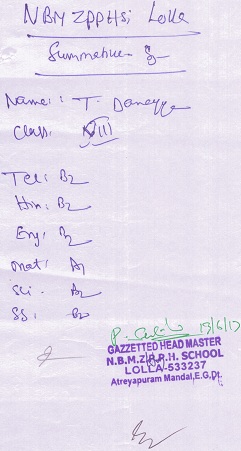 NBM ZPPHS, Lolla
Summative - 3
Name: T. Danayya
Class: VIII
Tel: B2
Hin: B2
Eng: B2
Mat: A2
Sci - A2
SS: B2
19/6/17
GAZZETTED HEAD MASTER
N.B.M.Z.P.P.H. SCHOOL
LOLLA-533237
Atreyapuram Mandal, E.G.Dt.